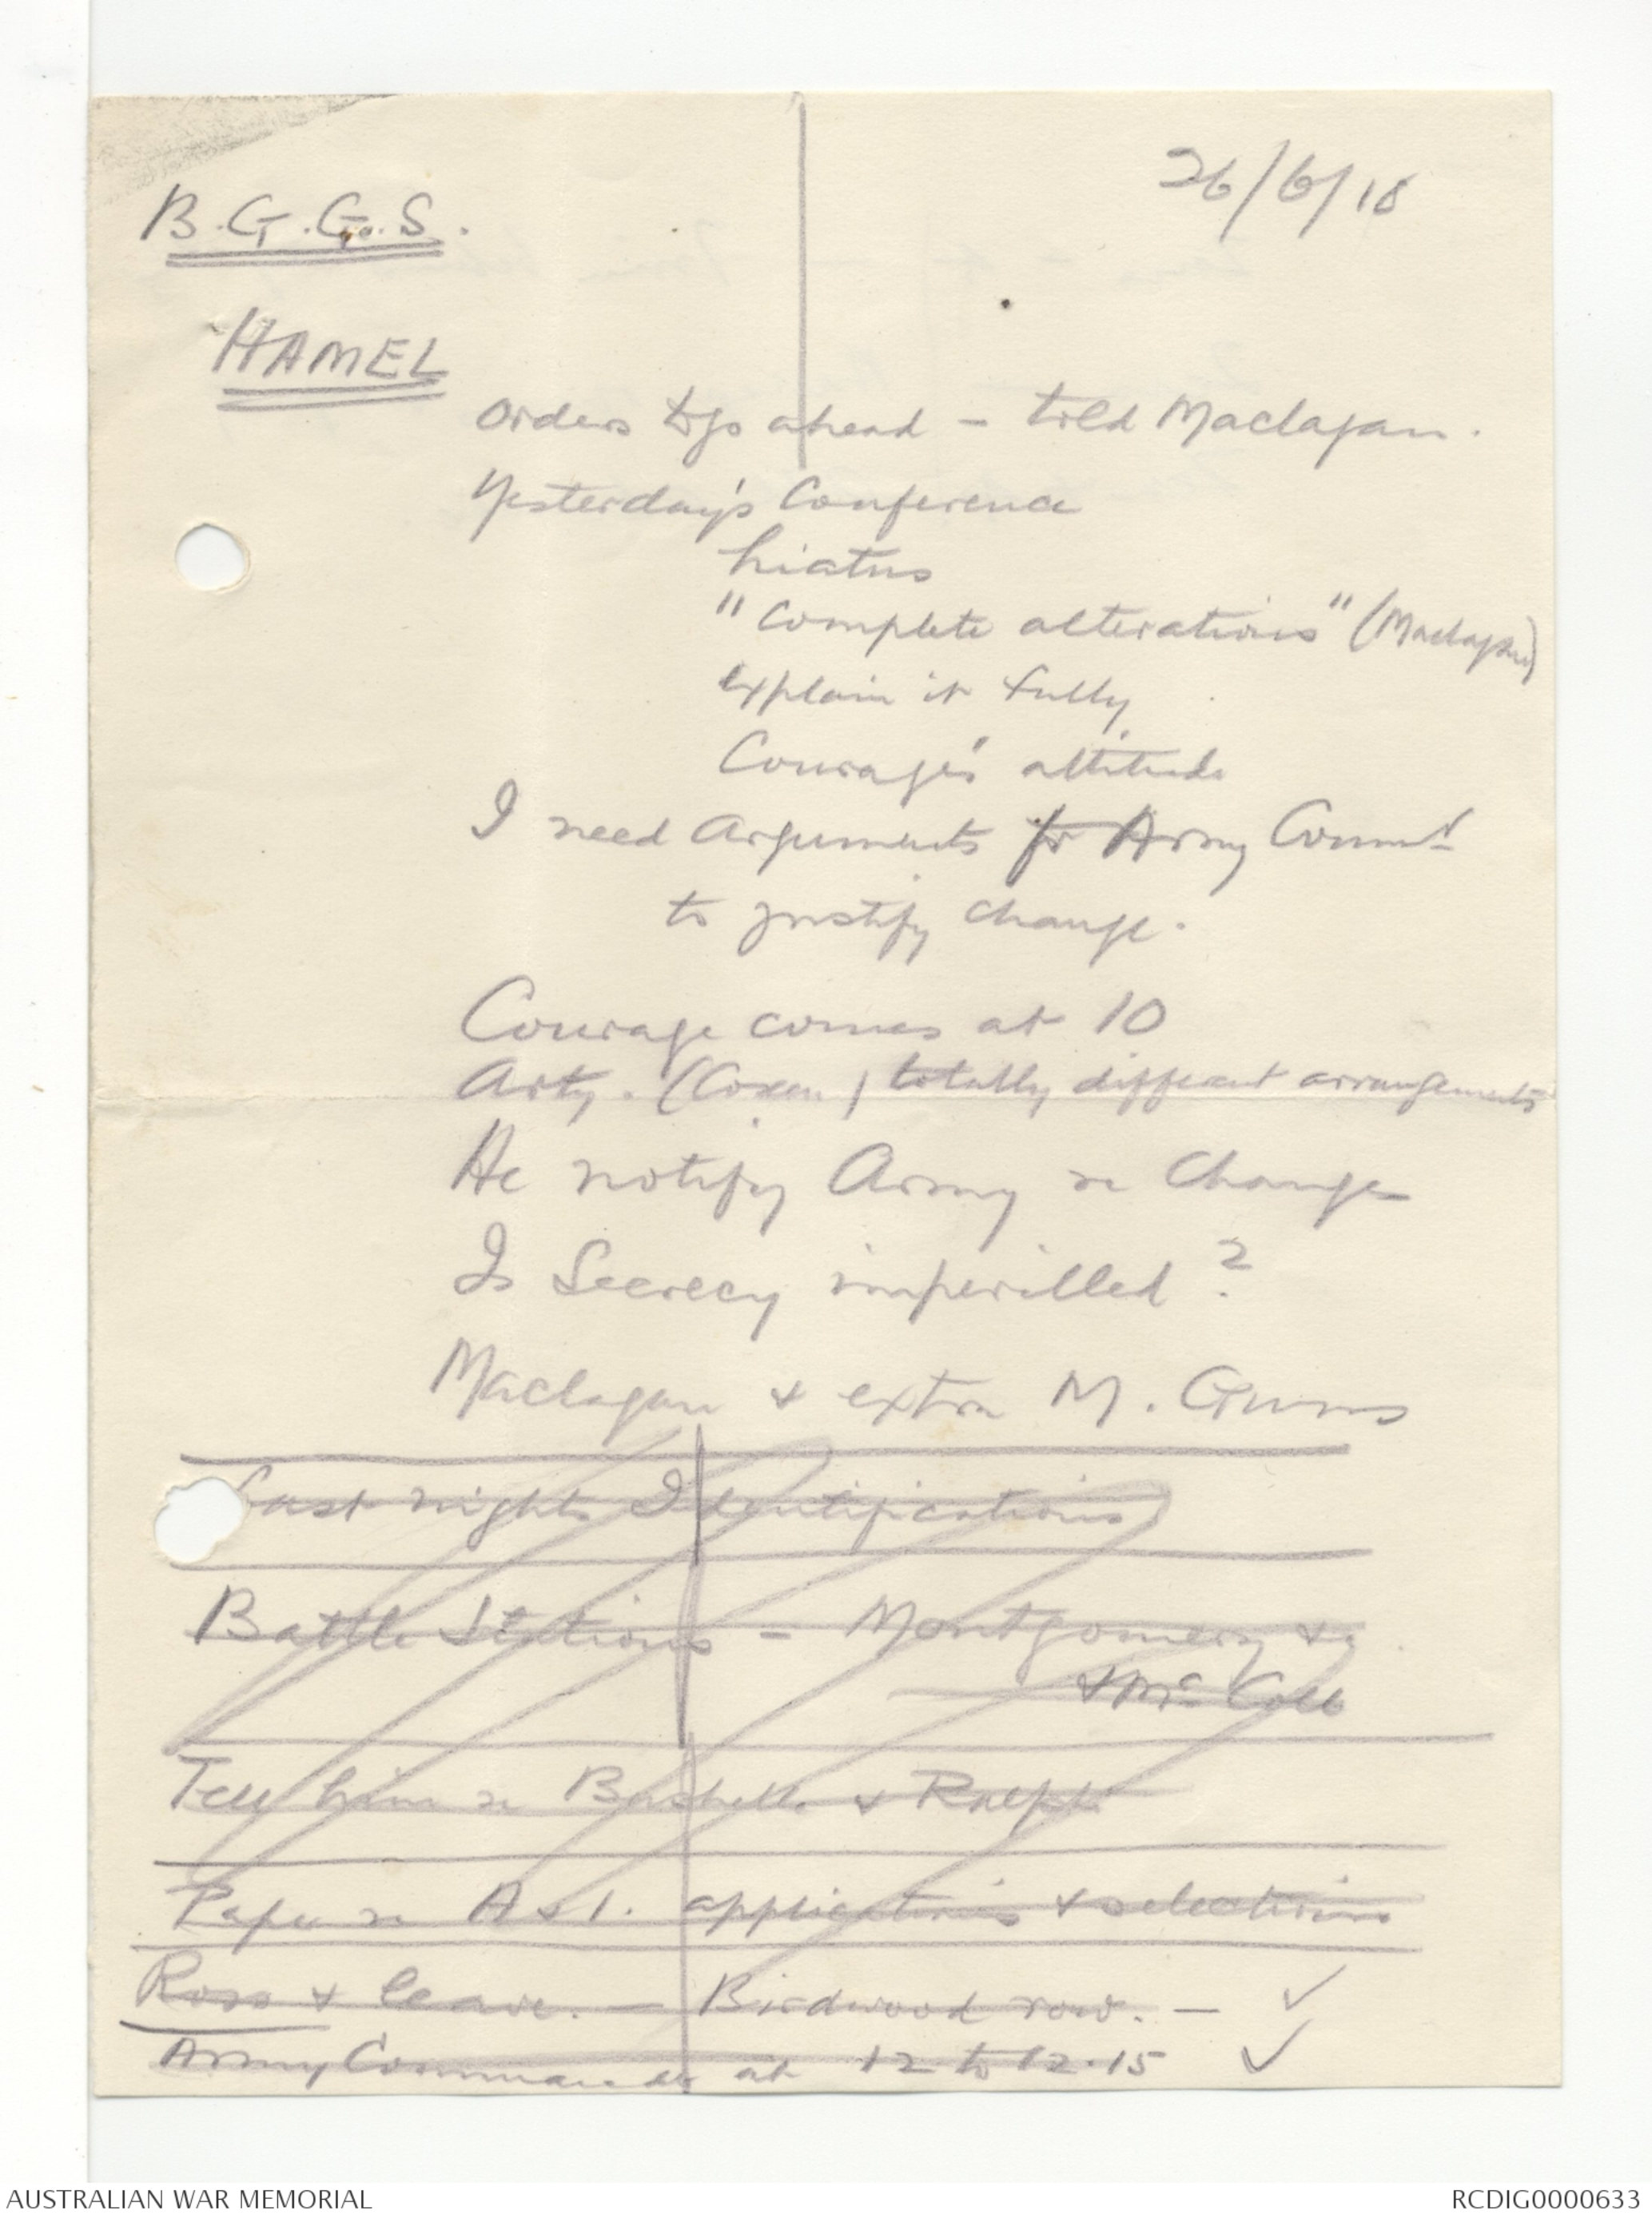 26/6/18
B.G.G.S.
HAMEL
Orders to go ahead - told Maclagan.
Yesterday's Conference
hiatus
"Complete alterations" (Maclagan)
explain it fully
Courage's attitude
I need Arguments for Army Commr
to justify change.
Courage comes at 10
Arty. (Coxen) totally different arrangements
He notify Army re Change
Is Secrecy imperilled?
Maclagan & extra M. Guns
Last night's Identifications
Battle Stations - Montgomery &c
& Mc
Tell him re & Ralph
Paper re A & I. applications & selections
Ross & leave. - Birdwood row. - ✓
Army Commander at 12 to 12.15 ✓
AUSTRALIAN WAR MEMORIAL
RCDIG0000633